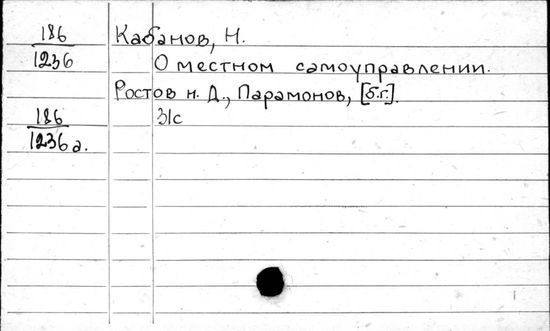 186 Кабанов, Н.
1236 О местном самоуправлении.
Ростов н. Д., Парамонов, [б.г.].
186 31с
1236а.